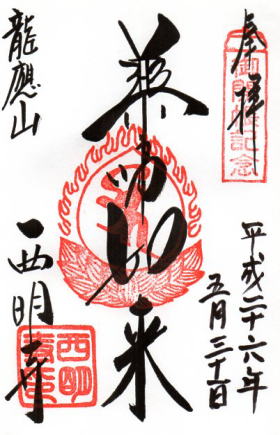 奉拝
記念
平成二十六年
五月三十日
薬師如来
龍應山
西明寺
西明